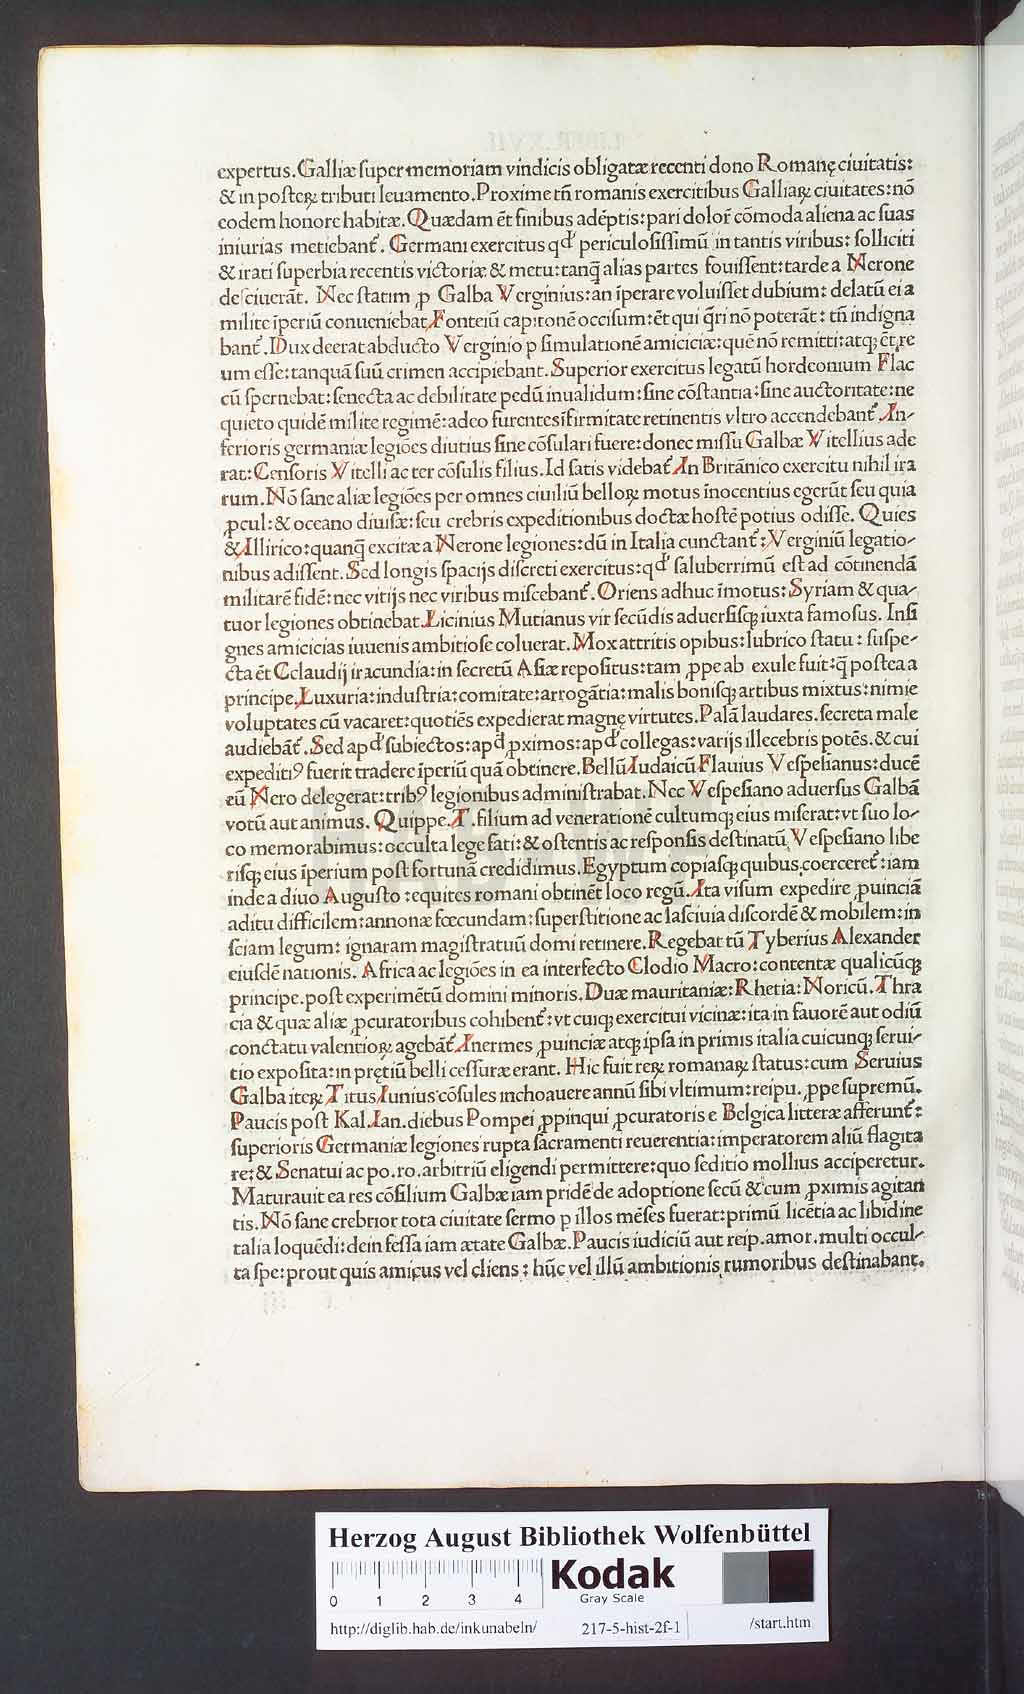 expertus. Galliæ super memoriam vindicis obligatæ recenti dono Romanę ciuitatis:
& in posteꝝ tributi leuamento. Proxime tñ romanis exercitibus Galliaꝝ ciuitates: nō
eodem honore habitæ. Quædam ēt finibus adēptis: pari dolor̄ cōmoda aliena ac suas
iniurias metiebant᷑. Germani exercitus qđ periculosissimū in tantis viribus: solliciti
& irati superbia recentis victoriæ & metu: tanq̄ alias partes fouissent: tarde a Nerone
desciuerāt. Nec statim ꝓ Galba Verginius: an īperare voluisset dubium: delatū ei a
milite īperiū conueniebat. Fonteiū capitonē occisum: ēt qui q̄ri nō poterāt: tñ indigna
bant᷑. Dux deerat abducto Verginio p simulationē amiciciæ: quē nō remitti: atqꝫ ēt re
um esse: tanquā suū crimen accipiebant. Superior exercitus legatū hordeonium Flac
cū spernebat: senecta ac debilitate pedū inualidum: sine cōstantia: sine auctoritate: ne
quieto quidē milite regimē: adeo furentes īfirmitate retinentis vltro accendebant᷑. In-
ferioris germaniæ legiōes diutius sine cōsulari fuere: donec missu Galbæ Vitellius ade
rat: Censoris Vitelli ac ter cōsulis filius. Id satis videbat᷑. In Britānico exercitu nihil ira
rum. Nō sane aliæ legiōes per omnes ciuiliū belloꝝ motus īnocentius egerūt seu quia
ꝓcul: & oceano diuisæ: seu crebris expeditionibus doctæ hostē potius odisse. Quies
& Illirico: quanq̄ excitæ a Nerone legiones: dū in Italia cunctant᷑: Verginiū legatio-
nibus adissent. Sed longis spacijs discreti exercitus: qđ saluberrimū est ad cōtinendā
militarē fidē: nec vitijs nec viribus miscebant᷑. Oriens adhuc īmotus: Syriam & qua-
tuor legiones obtinebat. Licinius Mutianus vir secūdis aduersisqꝫ iuxta famosus. Insi
gnes amicicias iuuenis ambitiose coluerat. Mox attritis opibus: lubrico statu: suspe-
cta ēt Cclaudij iracundia: in secretū Asiæ repositus: tam ꝓpe ab exule fuit: q̄ postea a
principe. Luxuria: industria: comitate: arrogātia: malis bonisqꝫ artibus mixtus: nimie
voluptates cū vacaret: quotiēs expedierat magnę virtutes. Palā laudares. secreta male
audiebāt᷑. Sed apđ subiectos: apđ ꝓximos: apđ collegas: varijs illecebris potēs. & cui
expeditiꝰ fuerit tradere īperiū quā obtinere. Bellū Iudaicū Flauius Vespesianus: ducē
eū Nero delegerat: tribꝰ legionibus administrabat. Nec Vespesiano aduersus Galbā
votū aut animus. Quippe. T. filium ad venerationē cultumqꝫ eius miserat: vt suo lo-
co memorabimus: occulta lege fati: & ostentis ac responsis destinatū Vespesiano libe
risqꝫ eius īperium post fortunā credidimus. Egyptum copiasqꝫ quibus coerceret᷑: iam
inde a diuo Augusto: equites romani obtinēt loco regū. Ita visum expedire ꝓuinciā
aditu difficilem: annonæ fœcundam: superstitione ac lasciuia discordē & mobilem: in
sciam legum: ignaram magistratuū domi retinere. Regebat tū Tyberius Alexander
eiusdē nationis. Africa ac legiōes in ea interfecto Clodio Macro: contentæ qualicūqꝫ
principe. post experimētū domini minoris. Duæ mauritaniæ: Rhetia: Noricū. Thra
cia & quæ aliæ ꝓcuratoribus cohibent᷑: vt cuiqꝫ exercitui vicinæ: ita in fauorē aut odiū
conctatu valentioꝝ agebāt᷑. Inermes ꝓuinciæ atqꝫ ipsa in primis italia cuicunqꝫ serui-
tio exposita: in pretiū belli cessuræ erant. Hic fuit reꝝ romanaꝝ status: cum Seruius
Galba iteꝝ Titus Iunius cōsules inchoauere annū sibi vltimum: reipu. ꝓpe supremū.
Paucis post Kal. Ian. diebus Pompei ꝓpinqui ꝓcuratoris e Belgica litteræ afferunt᷑:
superioris Germaniæ legiones rupta sacramenti reuerentia: imperatorem aliū flagita
re: & Senatui ac po. ro. arbitriū eligendi permittere: quo seditio mollius acciperetur.
Maturauit ea res cōsilium Galbæ iam pridē de adoptione secū & cum ꝓximis agitan
tis. Nō sane crebrior tota ciuitate sermo p illos mēses fuerat: primū licētia ac libidine
talia loquēdi: dein fessa iam ætate Galbæ. Paucis iudiciū aut reip. amor. multi occul-
ta spe: prout quis amicus vel cliens: hūc vel illū ambitionis rumoribus destinabant.
Herzog August Bibliothek Wolfenbüttel
0 1 2 3 4
Kodak
Gray Scale
http://diglib.hab.de/inkunabeln/ 217-5-hist-2f-1 /start.htm